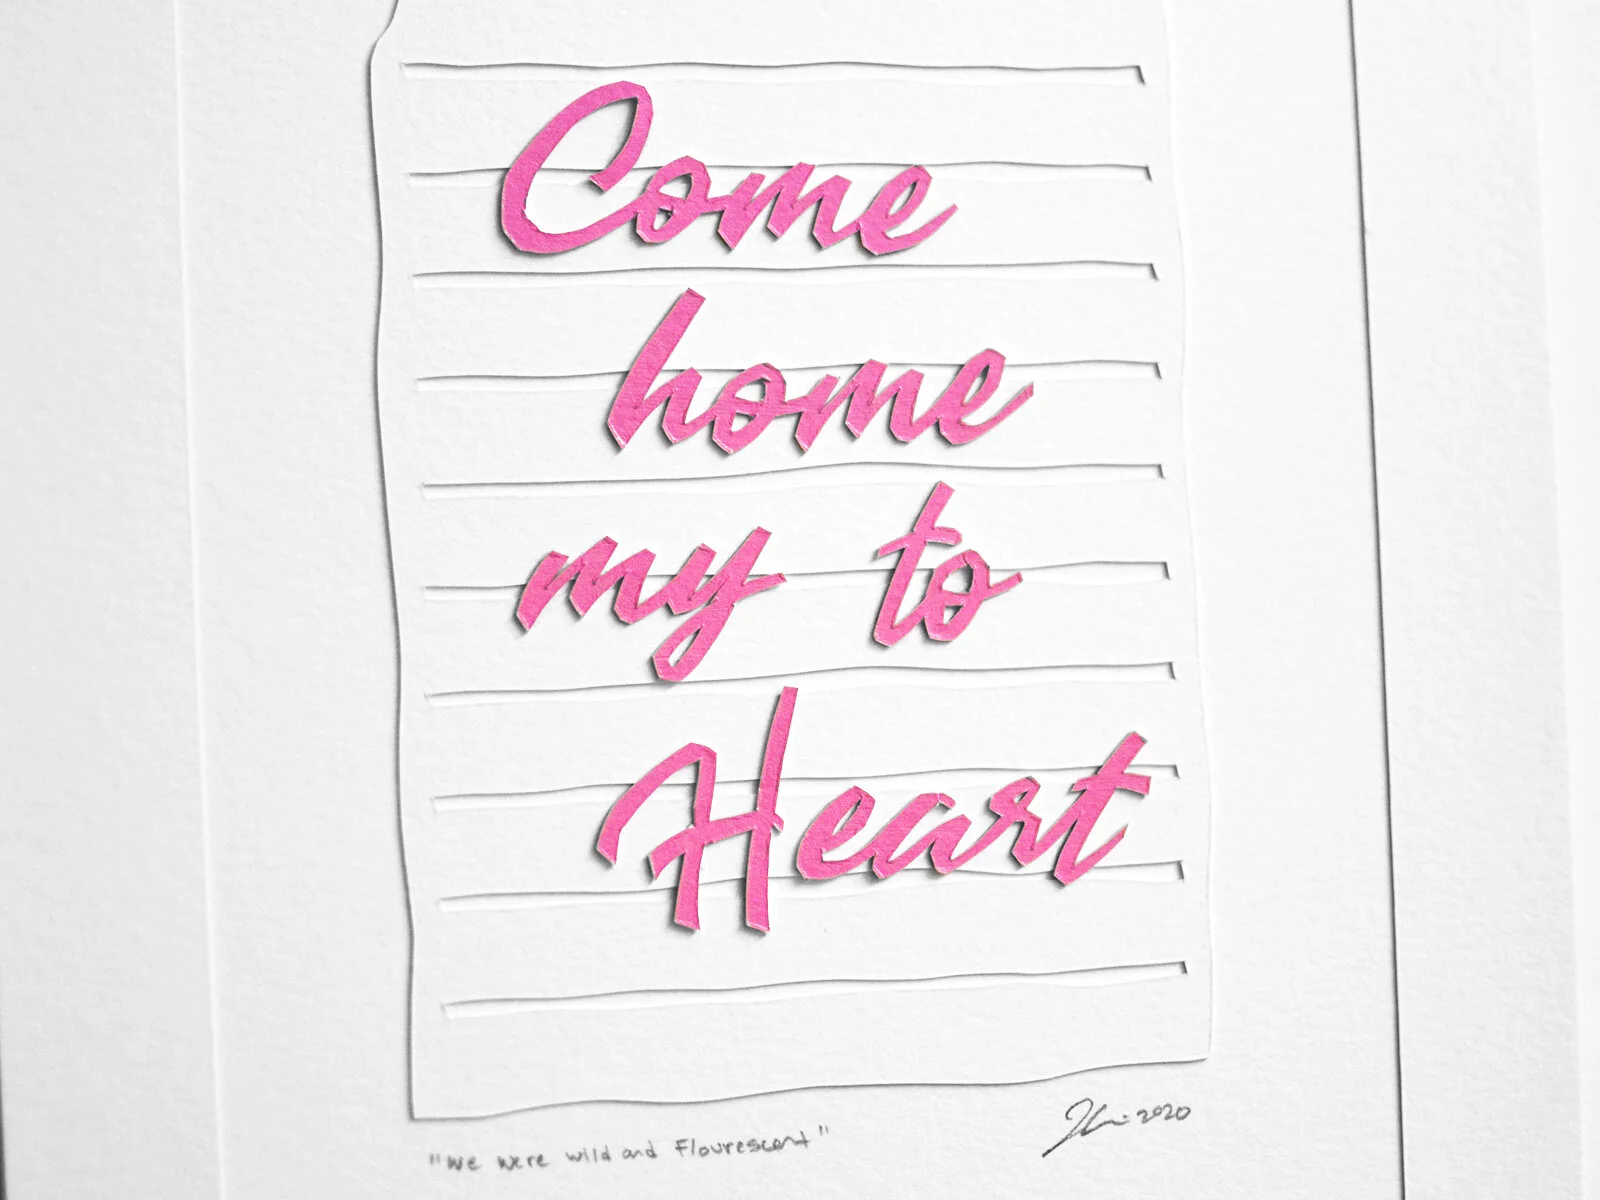 Come
home
my to
Heart
"we were wild and Flourescent"
2020